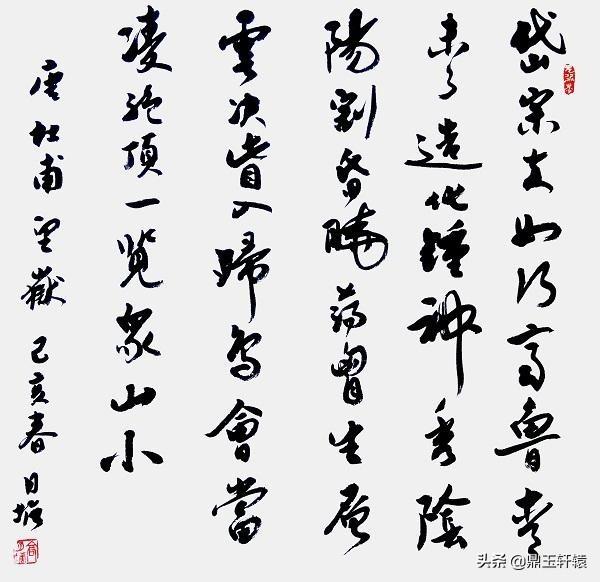 岱宗夫如何齊魯青
未了造化鍾神秀陰
陽割昏曉蕩胷生層
雲决眥入歸鳥會當
凌絶頂一覽衆山小
唐杜甫望嶽己亥春
头条 @鼎玉轩辕